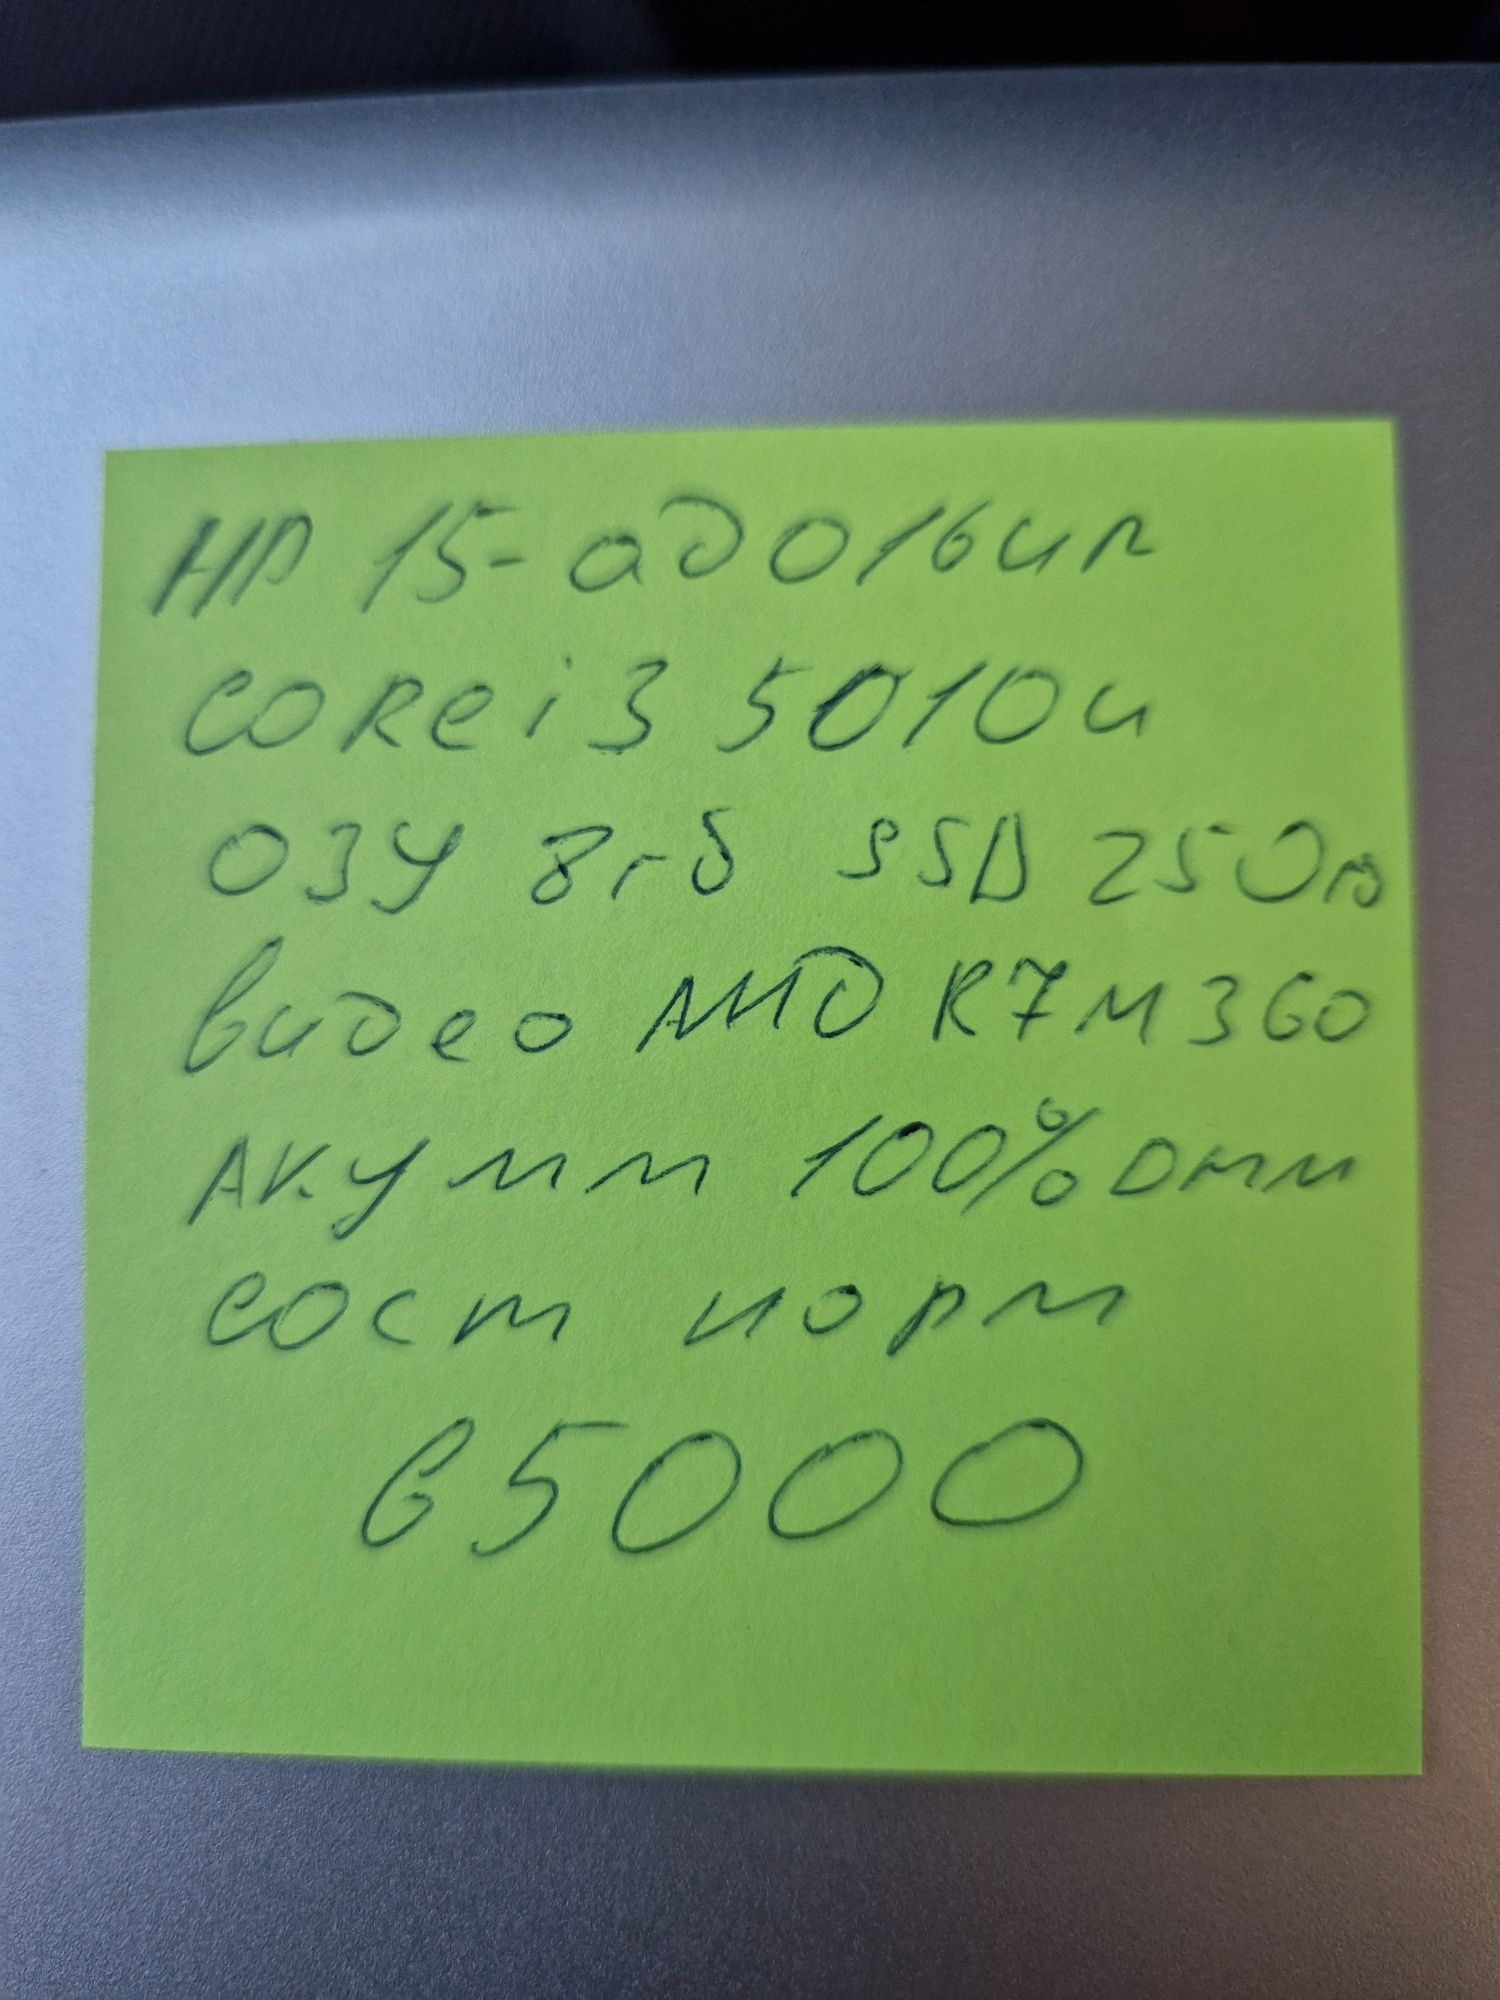 HP 15-ад016ur
core i3 5010u
ОЗУ 8гб SSD 250гб
видео AMD R7M360
АКумм 100%
сост норм
65000